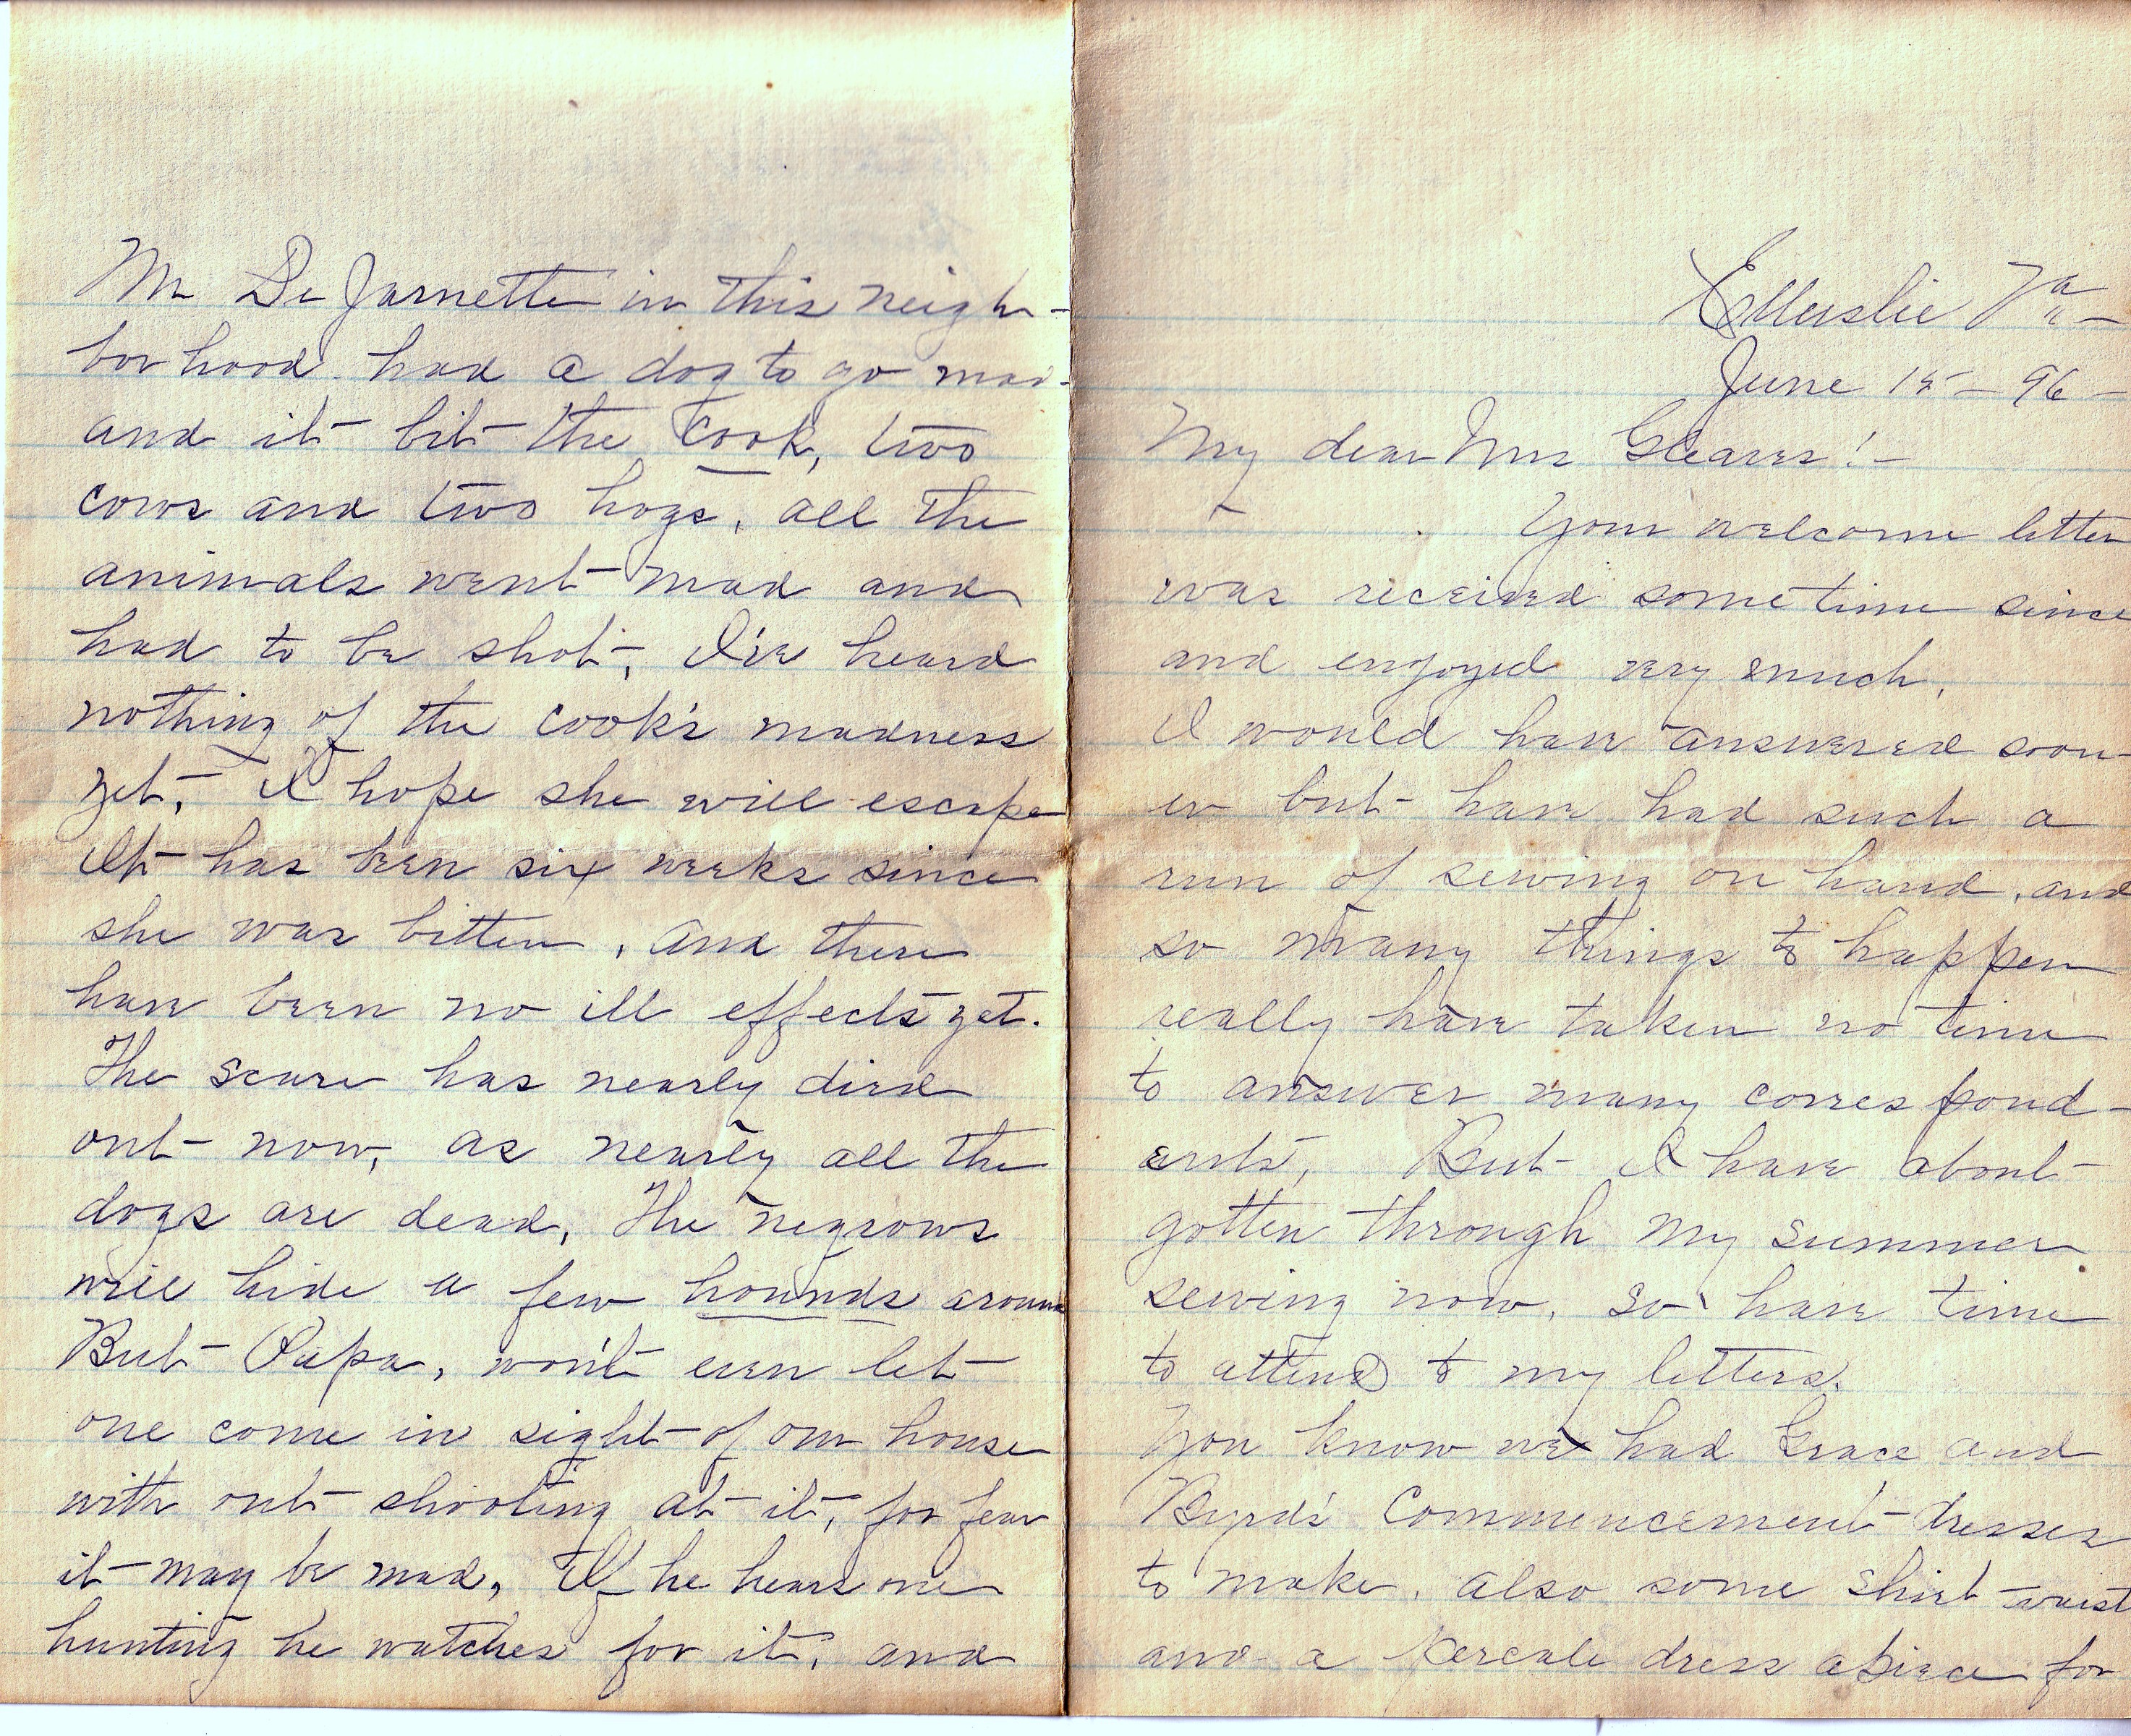 Ellerslie Va
June 15 - 96 -
My dear Mrs Gleaves! -
Your welcome letter
was received sometime since
and enjoyed very much.
I would have answered soon-
er but have had such a
run of sewing on hand, and
so many things to happen
really have taken no time
to answer many correspond-
ents, But I have about
gotten through my summer
sewing now, so have time
to attend to my letters.
You know we had Grace and
Byrd's Commencement dresses
to make, also some shirt-waist
and a percale dress apiece for
Mr De Jarnette in this neigh-
borhood had a dog to go mad
and it bit the cook, two
cows and two hogs, all the
animals went mad and
had to be shot, I've heard
nothing of the cook's madness
yet, I hope she will escape
It has been six weeks since
she was bitten, and there
have been no ill effects yet.
The scare has nearly died
out now, as nearly all the
dogs are dead, The negrows
will hide a few hounds around
But Papa, won't even let
one come in sight of our house
with out shooting at it, for fear
it may be mad, If he hears one
hunting he watches for it, and